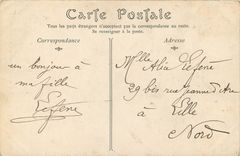 Carte Postale
Tous les pays étrangers n'acceptent pas la correspondance au recto.
Se renseigner à la poste.
Correspondance
Adresse
un bonjour à
ma fille
Mlle Alice
29 bis rue Jeanne d'Arc
à
Lille
Nord